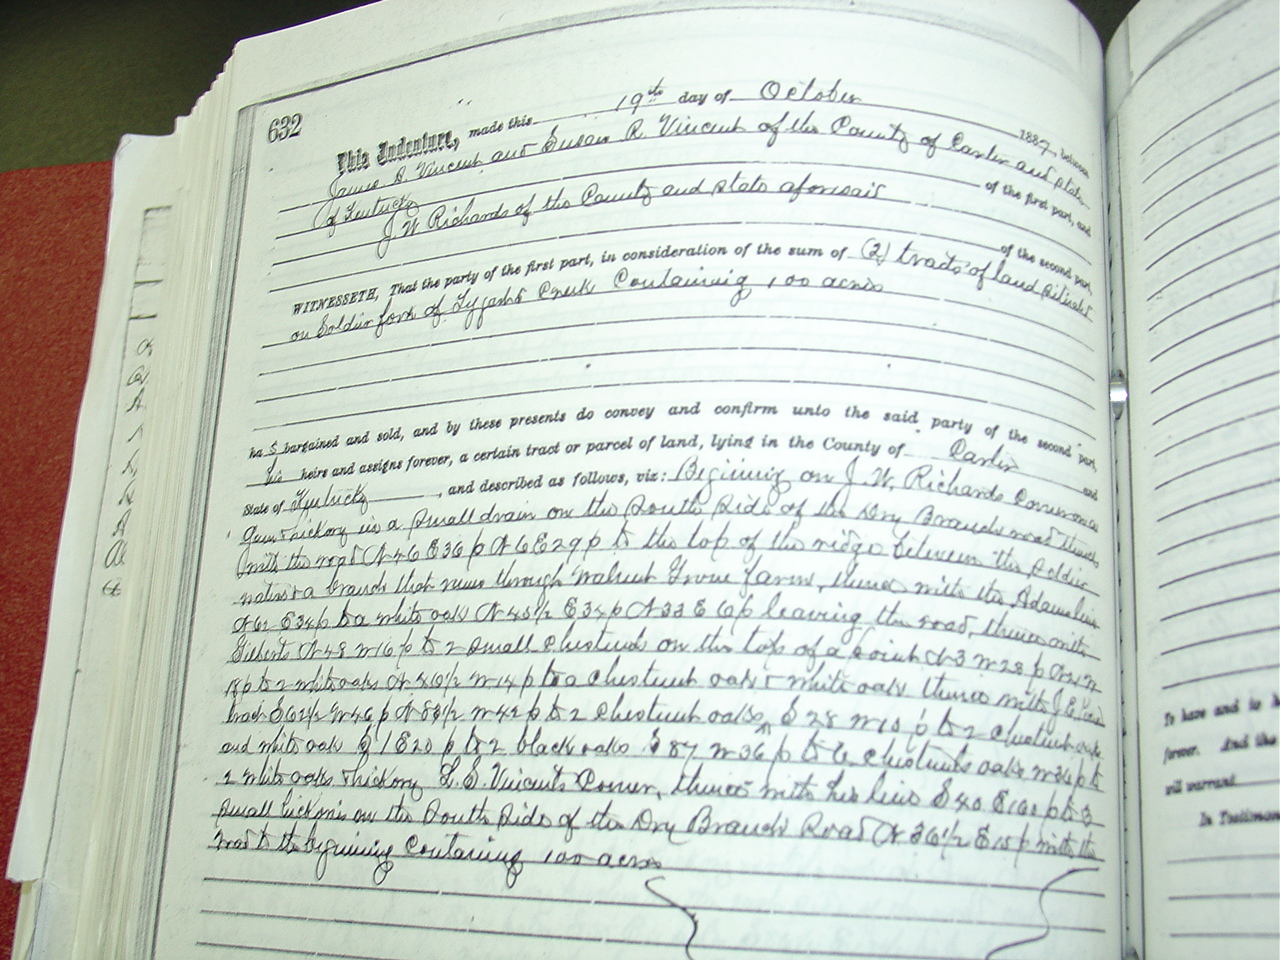 632
This Indenture, made this 19th day of October 1887, between
James A. Vincent and Susan R. Vincent of the County of Carter and State
of Kentucky of the first part, and
J. W. Richards of the County and state aforesaid of the second part,
WITNESSETH, That the party of the first part, in consideration of the sum of (2) tracts of land situate
on Soldier fork of Tygarts Creek Containing 100 acres
has bargained and sold, and by these presents do convey and confirm unto the said party of the second part,
his heirs and assigns forever, a certain tract or parcel of land, lying in the County of Carter and
State of Kentucky, and described as follows, viz: Begining on J. W. Richards Corner on a
Gum & hickory in a small drain on the South Side of the Dry Branch road thence
with the road N 46 E 36 p N 6 E 29 p to the top of the ridge between the Soldier
waters & a branch that runs through Walnut Grove farm, thence with the Adams line
N 61 E 34 p to a white oak N 45 1/2 E 34 p N 33 E 6 p leaving the road, thence with
Gilberts N 48 W 16 p to 2 small chestnuts on the top of a point N 3 W 28 p N
18 p to 2 white oaks N 40 1/2 W 14 p to a chestnut oak & white oak thence with J. E.
S 62 1/2 W 46 p N 88 1/2 W 42 p to 2 chestnut oaks, S 28 W 10 p to 2 chestnut oaks
and white oak S 1 E 20 p to 2 black oaks S 87 W 36 p to 6 chestnuts oaks W 36 p to
2 white oaks & hickory L. S. Vincents Corner, thence with his line S 40 E 160 p to 3
small hickories on the South Side of the Dry Branch Road N 36 1/2 E 15 p with the
road to the begining Containing 100 acres
To have and to h
forever. And the
will warrant
In Testimon